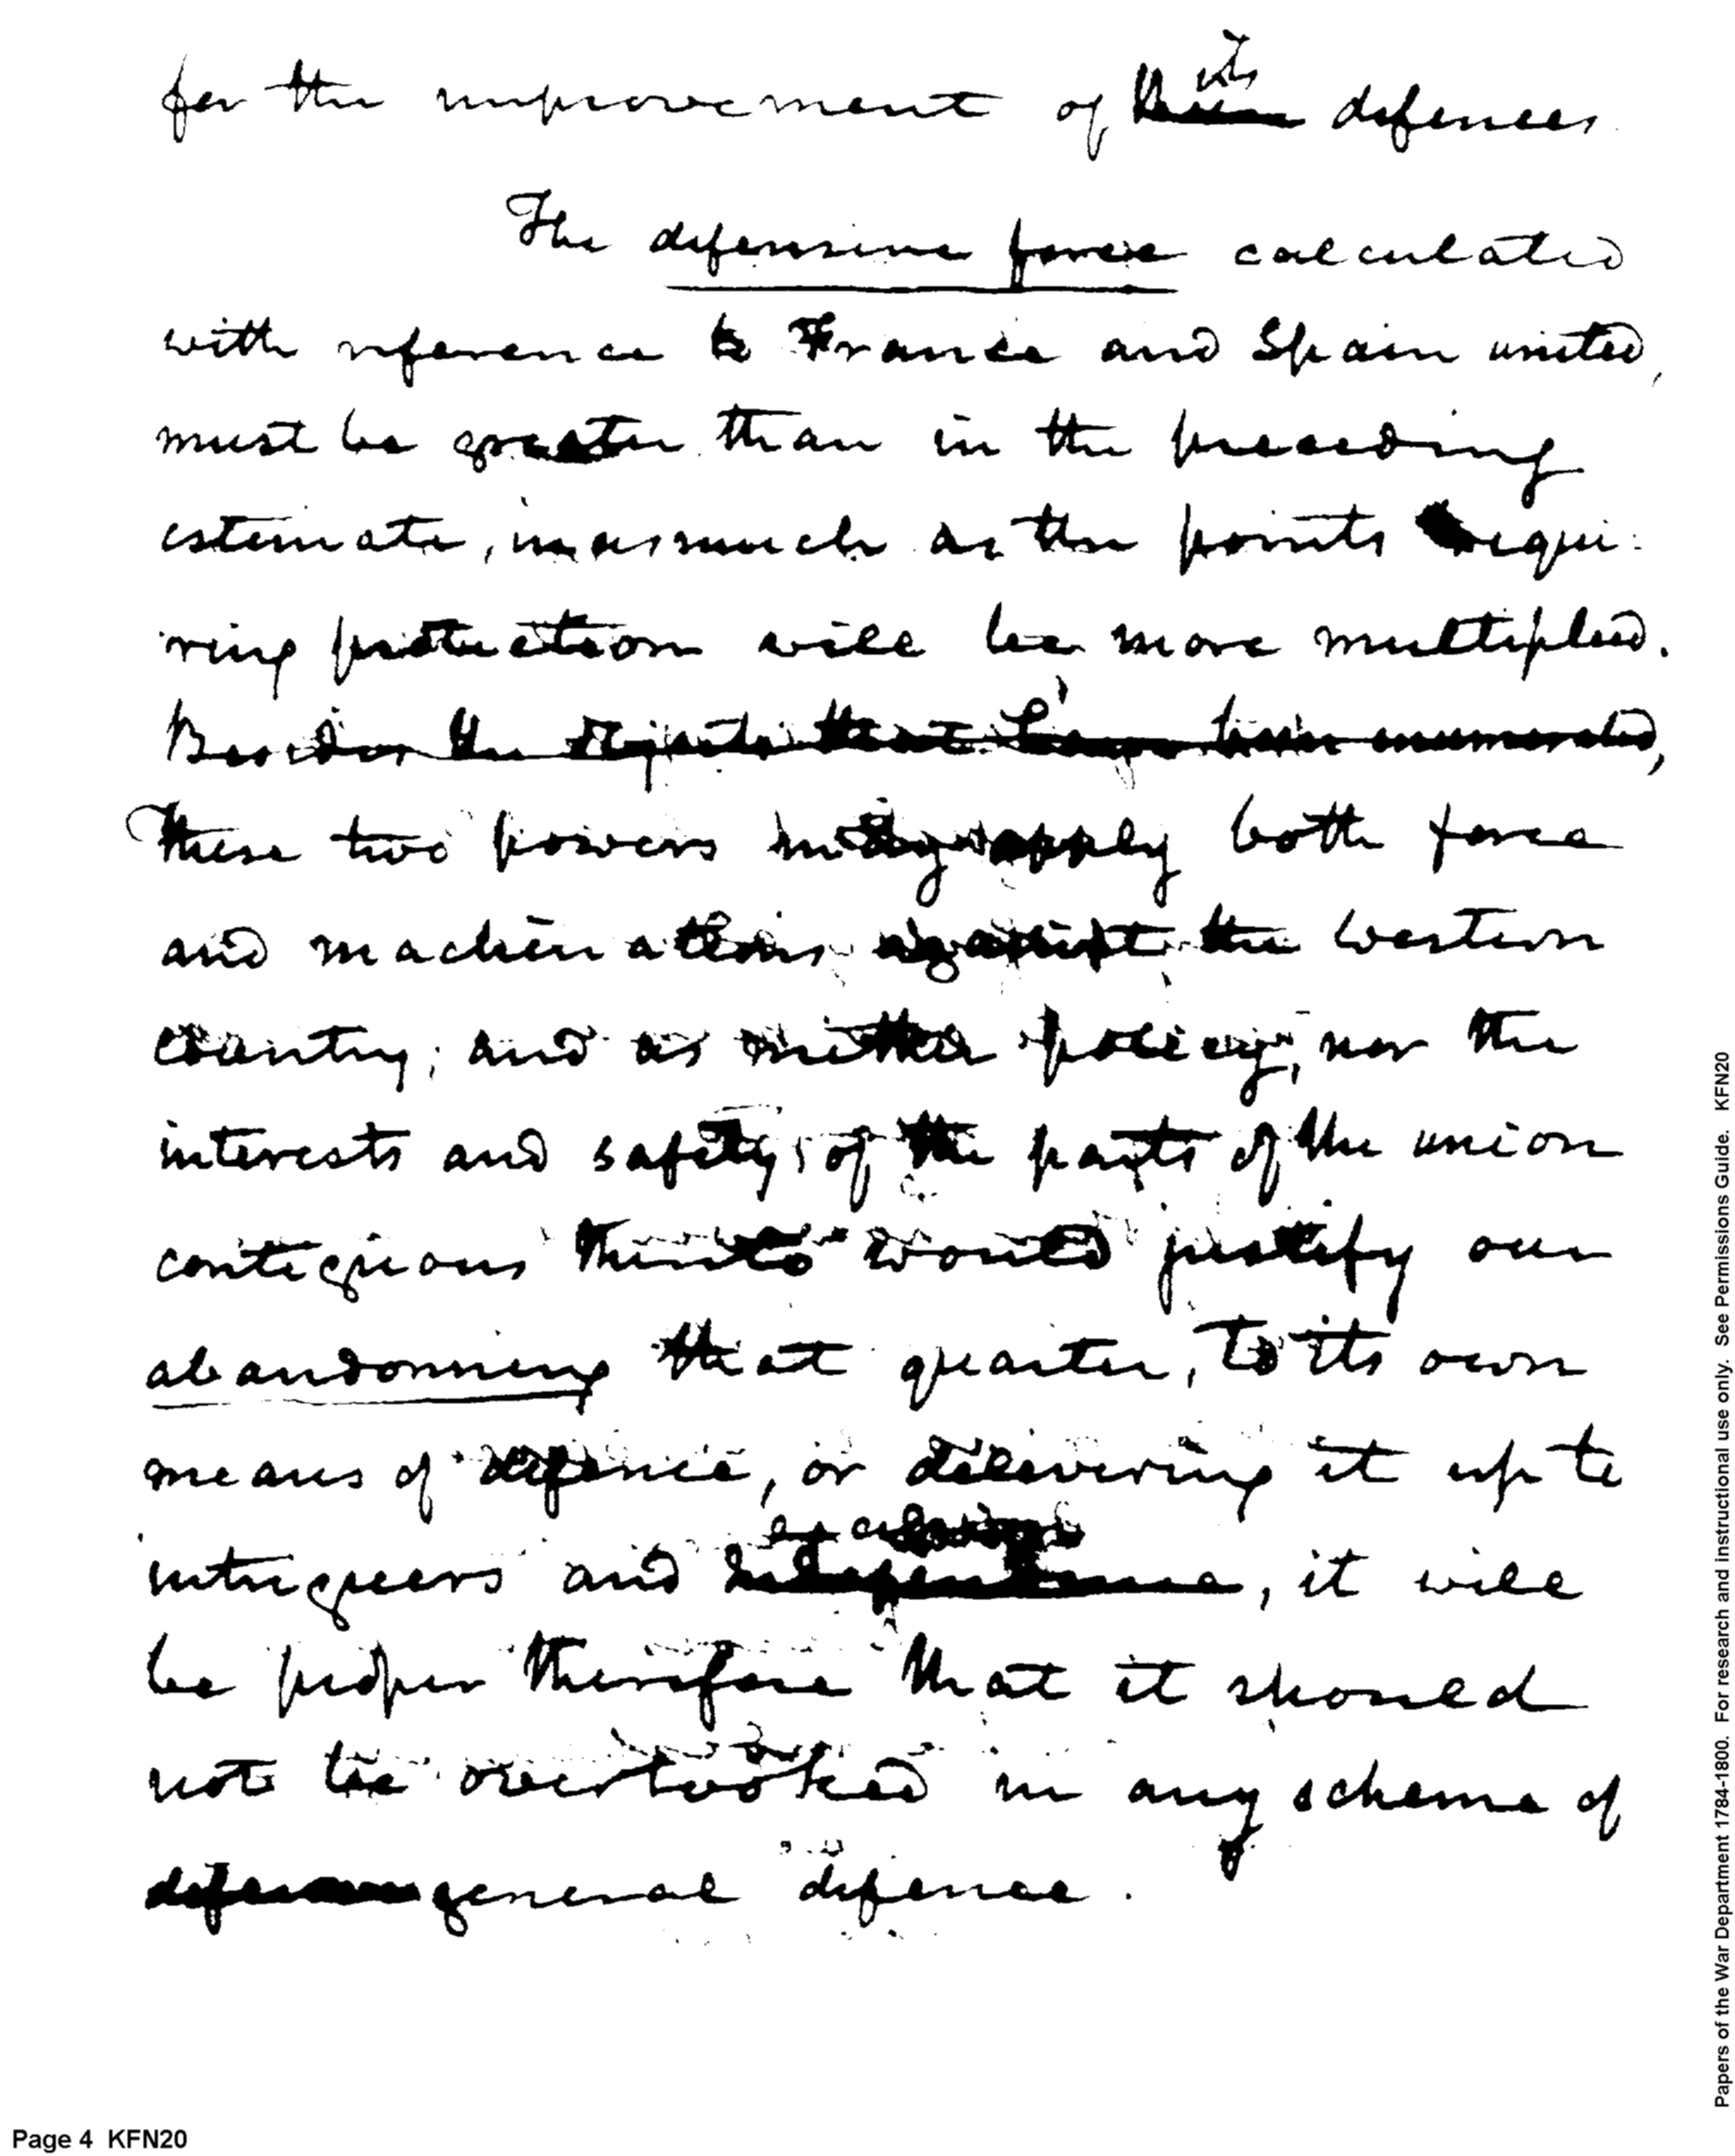 for the improvement of its defences.
The defensive force calculated
with reference to France and Spain united,
must be greater than in the preceeding
estimate, inasmuch as the points requi-
ring protection will be more multiplied.
Besides the objects that have been enumerated,
These two powers may apply both force
and machinations against the western
country; and as neither policy, nor the
interests and safety, of the parts of the union
contiguous thereto would justify our
abandonning that quarter, to its own
means of defence, or delivering it up to
intriguers and , it will
be proper therefore that it should
not be overlooked in any scheme of
general defence.
Papers of the War Department 1784-1800. For research and instructional use only. See Permissions Guide. KFN20
Page 4 KFN20